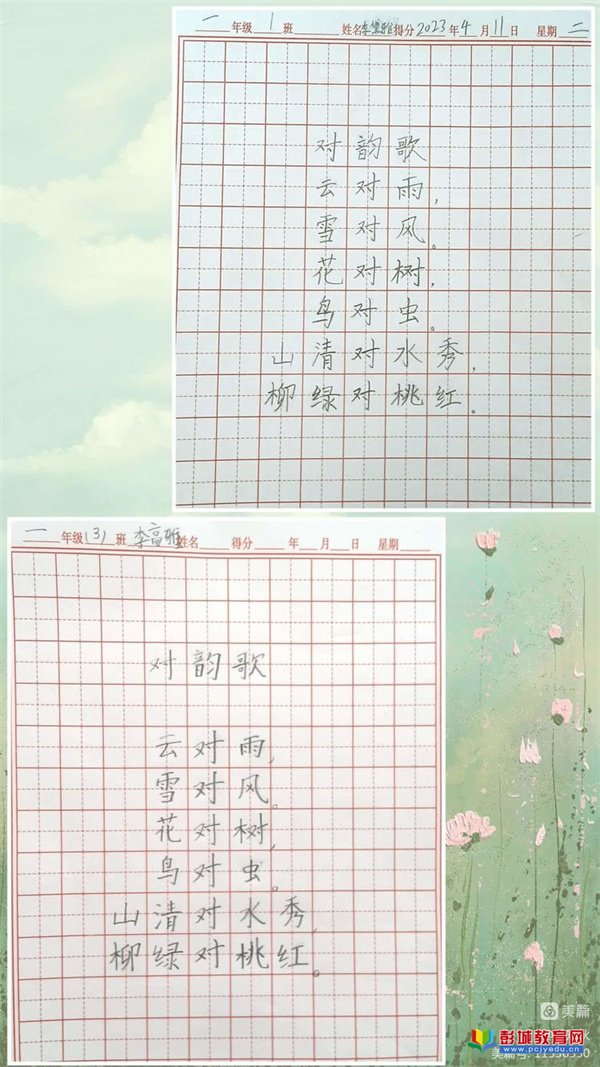 一年级1班 姓名李黛雅得分2023年4月11日 星期二
对韵歌
云对雨,
雪对风。
花对树,
鸟对虫。
山清对水秀,
柳绿对桃红。
一年级(3)班李富雅姓名 得分 年 月 日 星期
对韵歌
云对雨,
雪对风。
花对树,
鸟对虫。
山清对水秀,
柳绿对桃红。
美篇
彭城教育网
www.pcjyedu.cn